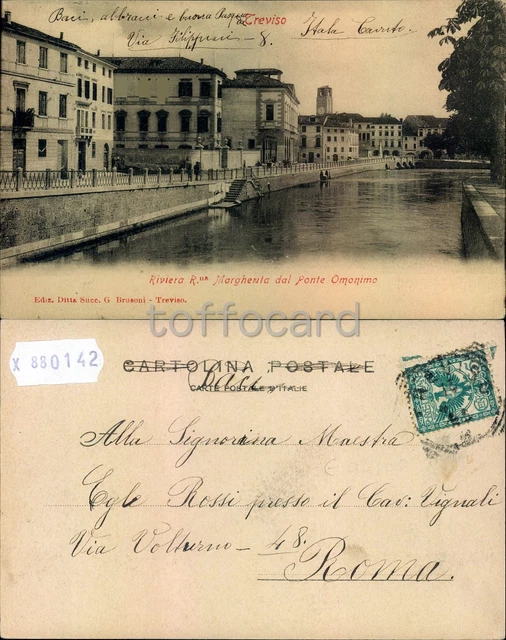 Baci, abbracci e buona Pasqua
Treviso
Via Filippini - 8.
Itala Caruto.
Riviera R.na Margherita dal Ponte Omonimo
Ediz. Ditta Succ. G. Brusoni - Treviso.
toffocard
X 880142
CARTOLINA POSTALE
CARTE POSTALE D'ITALIE
Alla Signorina Maestra
Egle Rossi presso il Cav: Vignali
Via Volturno - 48.
Roma.